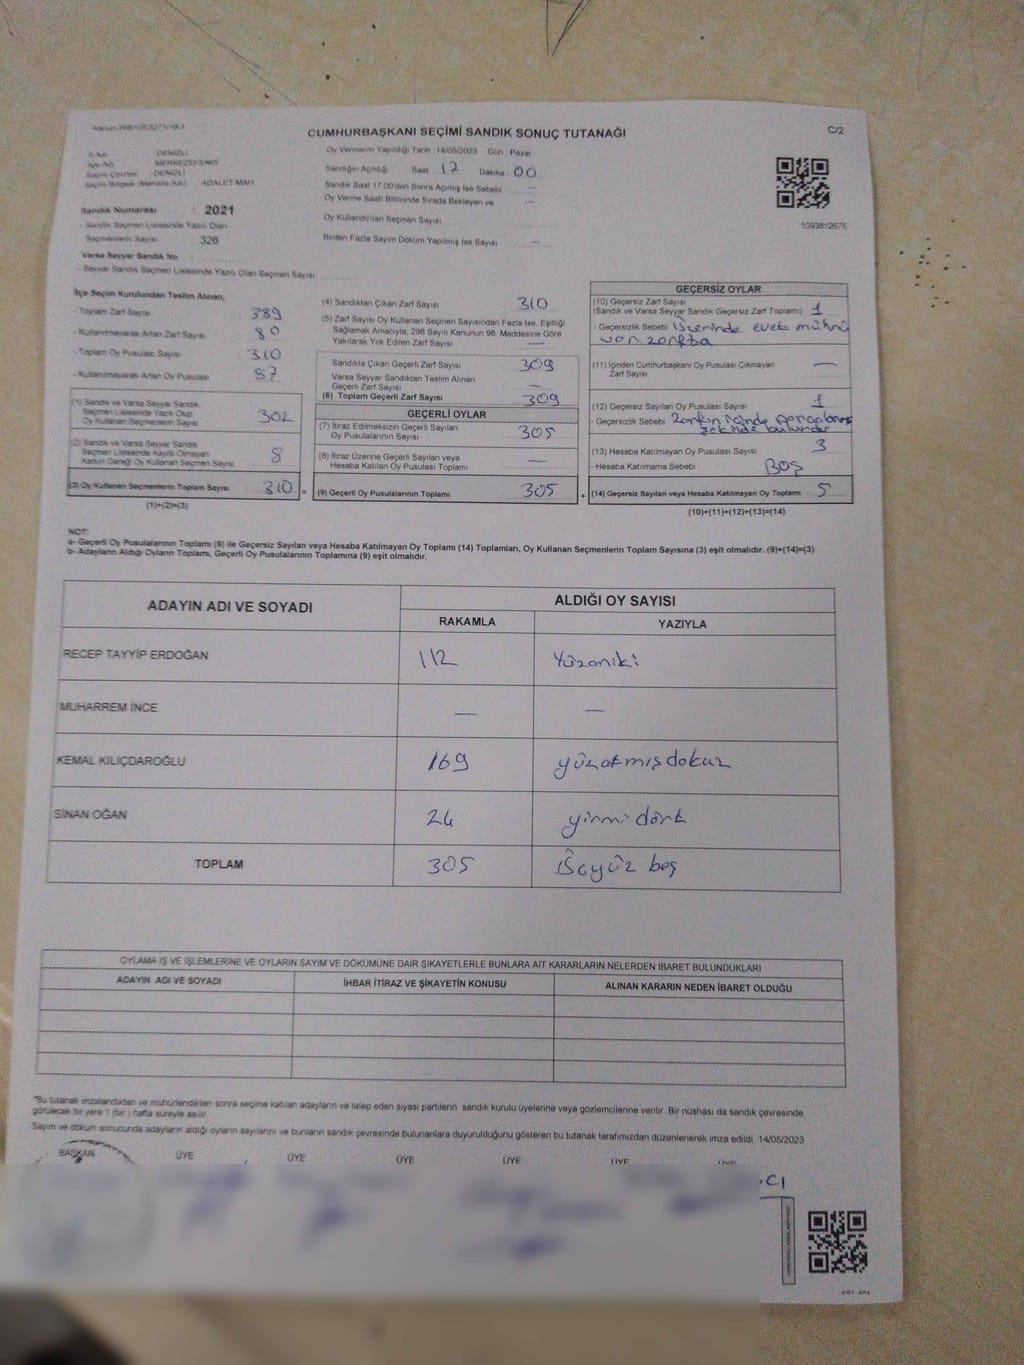 CUMHURBAŞKANI SEÇİMİ SANDIK SONUÇ TUTANAĞI
C/2
DENİZLİ
MERKEZEFENDİ
Seçim Çevresi : DENİZLİ
ADALET MAH
Sandık Numarası : 2021
- Sandık Seçmen Listesinde Yazılı Olan
Seçmenlerin Sayısı : 326
Varsa Seyyar Sandık No
- Seyyar Sandık Seçmen Listesinde Yazılı Olan Seçmen Sayısı:
Oy Vermenin Yapıldığı Tarih : 14/05/2023 Gün Pazar
Sandığın Açıldığı Saat 17 Dakika 00
Sandık Saat 17:00'den Sonra Açılmış İse Sebebi —
Oy Verme Saati Bitiminde Sırada Bekleyen ve —
Oy Kullandırılan Seçmen Sayısı
Birden Fazla Sayım Döküm Yapılmış İse Sayısı —
1093812675
İlçe Seçim Kurulundan Teslim Alınan;
- Toplam Zarf Sayısı 389
- Kullanılmayarak Artan Zarf Sayısı 80
- Toplam Oy Pusulası Sayısı 310
- Kullanılmayarak Artan Oy Pusulası 87
(1) Sandık ve Varsa Seyyar Sandık
Seçmen Listesinde Yazılı Olup
Oy Kullanan Seçmenlerin Sayısı 302
(2) Sandık ve Varsa Seyyar Sandık
Seçmen Listesinde Kayıtlı Olmayan
Kanun Gereği Oy Kullanan Seçmen Sayısı 8
(3) Oy Kullanan Seçmenlerin Toplam Sayısı 310 =
(1)+(2)=(3)
(4) Sandıktan Çıkan Zarf Sayısı 310
(5) Zarf Sayısı Oy Kullanan Seçmen Sayısından Fazla İse, Eşitliği
Sağlamak Amacıyla, 298 Sayılı Kanunun 98. Maddesine Göre
Yakılarak Yok Edilen Zarf Sayısı —
Sandıkta Çıkan Geçerli Zarf Sayısı 309
Varsa Seyyar Sandıktan Teslim Alınan
Geçerli Zarf Sayısı —
(6) Toplam Geçerli Zarf Sayısı 309
GEÇERLİ OYLAR
(7) İtiraz Edilmeksizin Geçerli Sayılan
Oy Pusulalarının Sayısı 305
(8) İtiraz Üzerine Geçerli Sayılan veya
Hesaba Katılan Oy Pusulası Toplamı —
(9) Geçerli Oy Pusulalarının Toplamı 305 +
GEÇERSİZ OYLAR
(10) Geçersiz Zarf Sayısı
(Sandık ve Varsa Seyyar Sandık Geçersiz Zarf Toplamı) 1
- Geçersizlik Sebebi İçerinde evet mührü
var zarfta
(11) İçinden Cumhurbaşkanı Oy Pusulası Çıkmayan
Zarf Sayısı —
(12) Geçersiz Sayılan Oy Pusulası Sayısı 1
- Geçersizlik Sebebi Zarfın içinde
şekilde bulundu
(13) Hesaba Katılmayan Oy Pusulası Sayısı 3
- Hesaba Katılmama Sebebi BOŞ
(14) Geçersiz Sayılan veya Hesaba Katılmayan Oy Toplamı 5
(10)+(11)+(12)+(13)=(14)
NOT:
a- Geçerli Oy Pusulalarının Toplamı (9) ile Geçersiz Sayılan veya Hesaba Katılmayan Oy Toplamı (14) Toplamları, Oy Kullanan Seçmenlerin Toplam Sayısına (3) eşit olmalıdır. (9)+(14)=(3)
b- Adayların Aldığı Oyların Toplamı, Geçerli Oy Pusulalarının Toplamına (9) eşit olmalıdır.
ADAYIN ADI VE SOYADI
ALDIĞI OY SAYISI
RAKAMLA YAZIYLA
RECEP TAYYİP ERDOĞAN 112 Yüzoniki
MUHARREM İNCE — —
KEMAL KILIÇDAROĞLU 169 yüzatmışdokuz
SİNAN OĞAN 24 yirmi dört
TOPLAM 305 Üçyüz beş
OYLAMA İŞ VE İŞLEMLERİNE VE OYLARIN SAYIM VE DÖKÜMÜNE DAİR ŞİKAYETLERLE BUNLARA AİT KARARLARIN NELERDEN İBARET BULUNDUKLARI
ADAYIN ADI VE SOYADI İHBAR İTİRAZ VE ŞİKAYETİN KONUSU ALINAN KARARIN NEDEN İBARET OLDUĞU
"Bu tutanak imzalandıktan ve mühürlendikten sonra seçime katılan adayların ve talep eden siyasi partilerin sandık kurulu üyelerine veya gözlemcilerine verilir. Bir nüshası da sandık çevresinde
görülecek bir yere 1 (bir) hafta süreyle asılır.
Sayım ve döküm sonucunda adayların aldığı oyların sayılarını ve bunların sandık çevresinde bulunanlara duyurulduğunu gösteren bu tutanak tarafımızdan düzenlenerek imza edildi. 14/05/2023
BAŞKAN ÜYE ÜYE ÜYE ÜYE ÜYE ÜYE